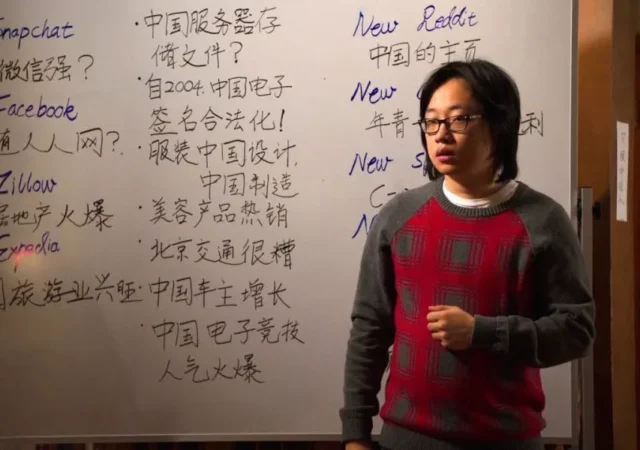 Snapchat
微信强?
Facebook
人人网?
Zillow
地产火爆
Expedia
旅游业兴旺
·中国服务器存
储文件?
·自2004.中国电子
签名合法化!
·服装中国设计,
中国制造
·美容产品热销
·北京交通很糟
·中国车主增长
·中国电子竞技
人气火爆
New Reddit
中国的主页
New
年青
利
New